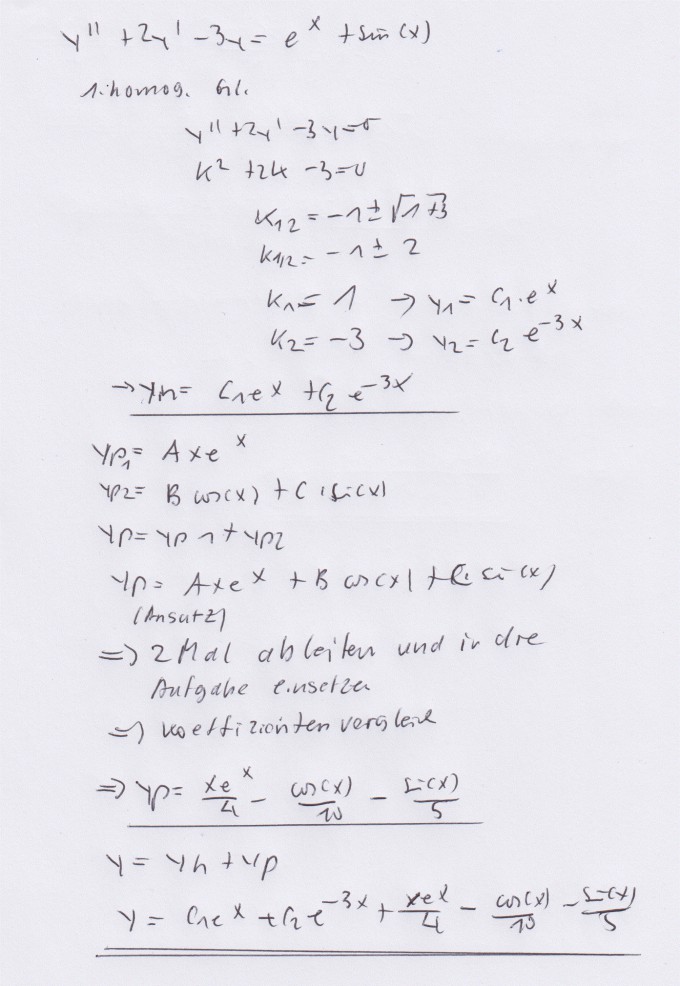 y'' + 2y' - 3y = e^x + sin(x)
1. homog. Gl.
y'' + 2y' - 3y = 0
k² + 2k - 3 = 0
k₁₂ = -1 ± √1+3
k₁/₂ = -1 ± 2
k₁ = 1 → y₁ = C₁·e^x
k₂ = -3 → y₂ = C₂ e^-3x
→ yh = C₁e^x + C₂ e^-3x
yp₁ = A x e^x
yp2 = B cos(x) + C sin(x)
yp = yp1 + yp2
yp = Axe^x + B cos(x) + C sin(x)
(Ansatz)
=> 2 Mal ableiten und in die
Aufgabe einsetzen
=> Koeffizienten vergleich
=> yp = xe^x/4 - cos(x)/10 - sin(x)/5
y = yh + yp
y = C₁e^x + C₂e^-3x + xe^x/4 - cos(x)/10 - sin(x)/5